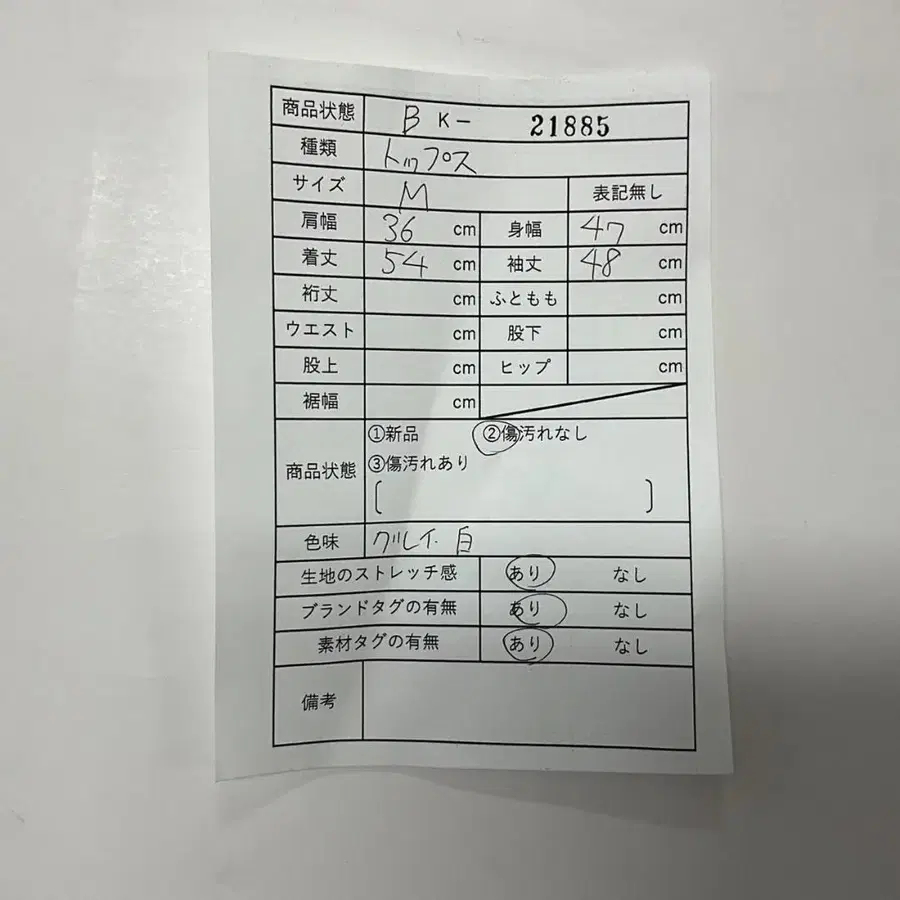 商品状態 B K- 21885
種類 トップス
サイズ M 表記無し
肩幅 36 cm 身幅 47 cm
着丈 54 cm 袖丈 48 cm
裄丈 cm ふともも cm
ウエスト cm 股下 cm
股上 cm ヒップ cm
裾幅 cm
商品状態 ①新品 ②傷汚れなし
③傷汚れあり
[ ]
色味 グレイ. 白
生地のストレッチ感 あり なし
ブランドタグの有無 あり なし
素材タグの有無 あり なし
備考